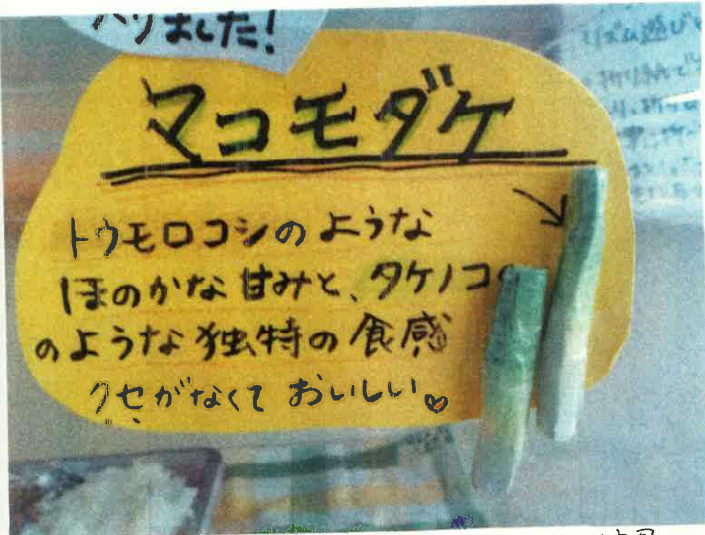 ハリました!
マコモダケ
トウモロコシのような
ほのかな甘みと、タケノコの
のような独特の食感
クセがなくて おいしい♡
リズム遊び